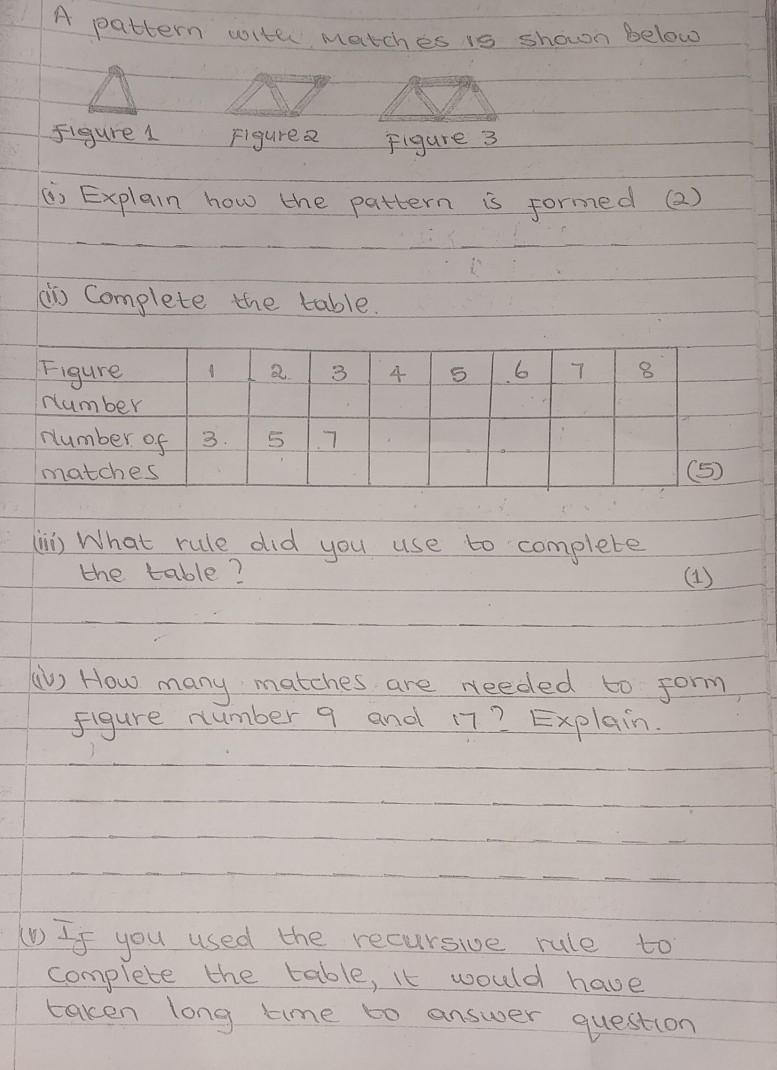 A pattern with Matches is shown below
Figure 1 Figure 2 Figure 3
(i) Explain how the pattern is formed (2)
(ii) Complete the table.
Figure Number 1 2 3 4 5 6 7 8
Number of matches 3. 5 7
(5)
(iii) What rule did you use to complete
the table? (1)
(iv) How many matches are needed to form
figure number 9 and 17? Explain.
(v) If you used the recursive rule to
complete the table, it would have
taken long time to answer question